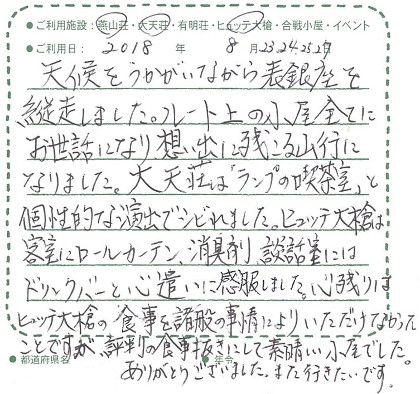 ●ご利用施設：燕山荘・大天荘・有明荘・ヒュッテ大槍・合戦小屋・イベント
●ご利用日： 2018 年 8 月23.24.25.27日
天候をうかがいながら表銀座を
縦走しました。ルート上の小屋全てに
お世話になり想い出に残こる山行に
なりました。大天荘は「ランプの喫茶室」と
個性的な演出でシビれました。ヒュッテ大槍は
客室にロールカーテン、消臭剤、談話室には
ドリンクバーと心遣いに感服しました。心残りは
ヒュッテ大槍の食事を諸般の事情によりいただけなかった
ことですが、評判の食事抜きにして素晴しい小屋でした。
●都道府県名 ●年令
ありがとうございました。また行きたいです。